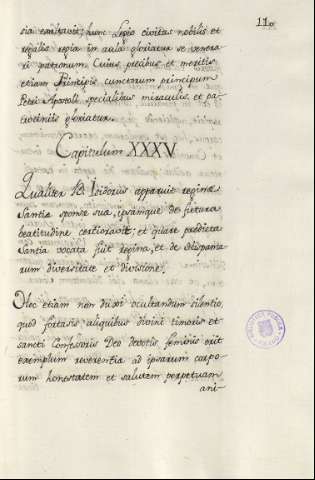 11
sia exaltavit; hunc Legio civitas nobilis et
regalis regia in aula gloriatur se venera
ri patronum. Cuius precibus et meritis
etiam Principis cunctorum principum
Petri Apostoli specialibus miraculis et pa
trociniis gloriatur.
Capitulum XXXV
Qualiter B. Isidorus apparuit regine
Santie sponse sua, ipsamque de futura
beatitudine certioravit; et quare predicta
Santia vocata fuit regina, et de Hispania
rum diversitate et divisione.
Hec etiam non duxi occultandum silentio,
quod fortasis aliquibus divini timoris et
sancti Confessoris Deo devotis feminis erit
exemplum reverentia ad ipsarum corpo
rum honestatem et salutem perpetuam
ani-